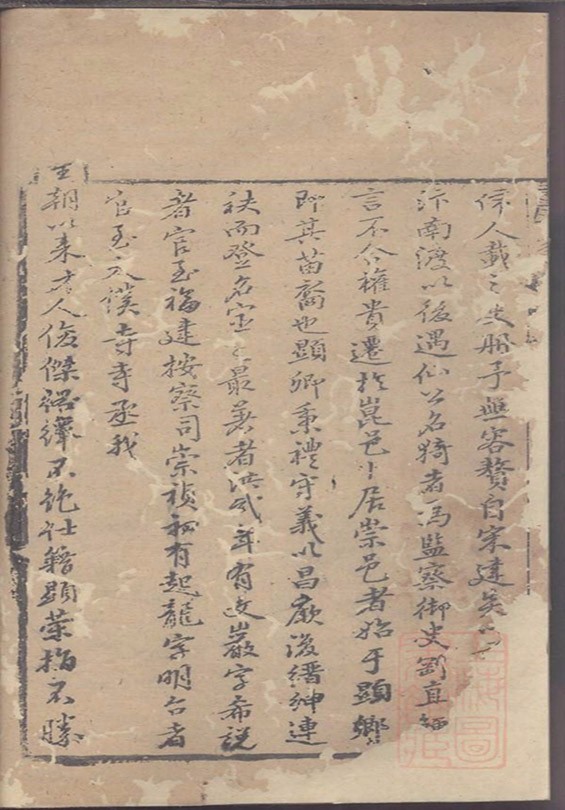 偉人載之史册予無容贅自宋建炎
汴南渡以後遇仙公名犄者爲監察御史劉直
言不合權貴遷於崑邑卜居崇邑者始于顯卿
即其苗裔也顯卿秉禮守義以昌厥後縉紳連
袂而登名宦之最著者洪武年有文巖字希説
者官至福建按察司崇禎初有起龍字明台者
官至太僕寺寺丞我
王朝以來才人俊傑絡繹不絶仕籍顯榮指不勝